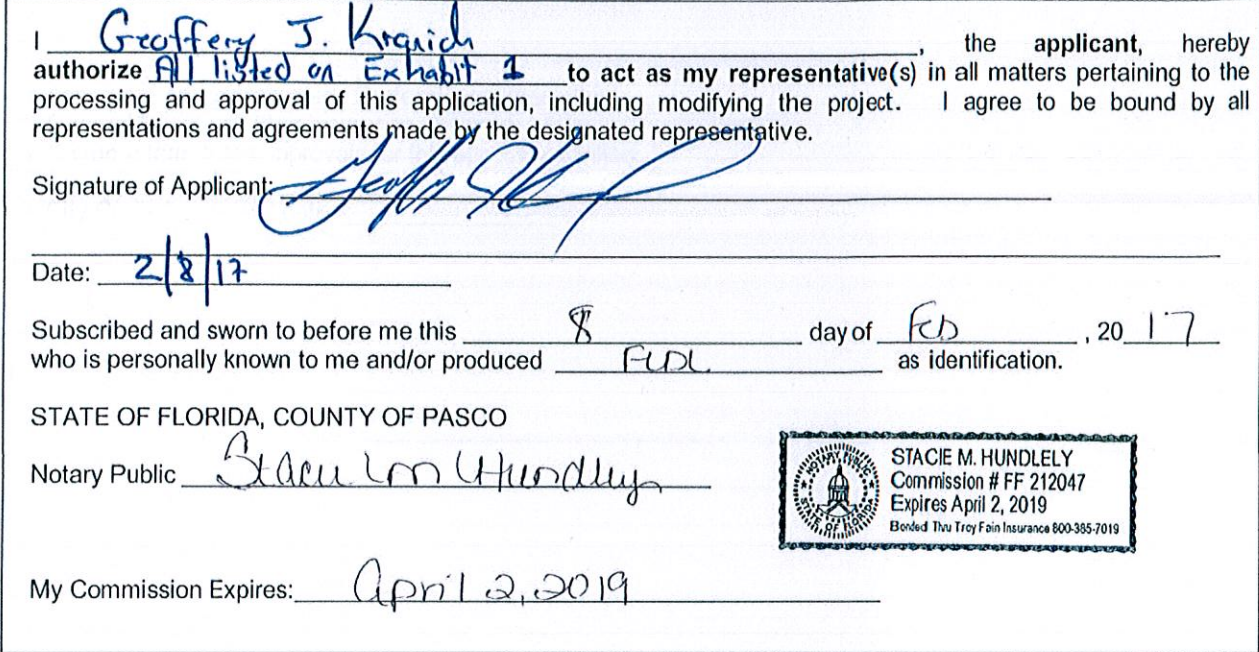 I Geoffery J. Kranich, the applicant, hereby
authorize All listed on Exhabit 1 to act as my representative(s) in all matters pertaining to the
processing and approval of this application, including modifying the project. I agree to be bound by all
representations and agreements made by the designated representative.
Signature of Applicant:
Date: 2/8/17
Subscribed and sworn to before me this 8 day of Feb, 20 17
who is personally known to me and/or produced FLDL as identification.
STATE OF FLORIDA, COUNTY OF PASCO
Notary Public Stacie M Hundley
NOTARY PUBLIC
STATE OF FLORIDA
STACIE M. HUNDLELY
Commission # FF 212047
Expires April 2, 2019
Bonded Thru Troy Fain Insurance 800-385-7019
My Commission Expires: April 2, 2019